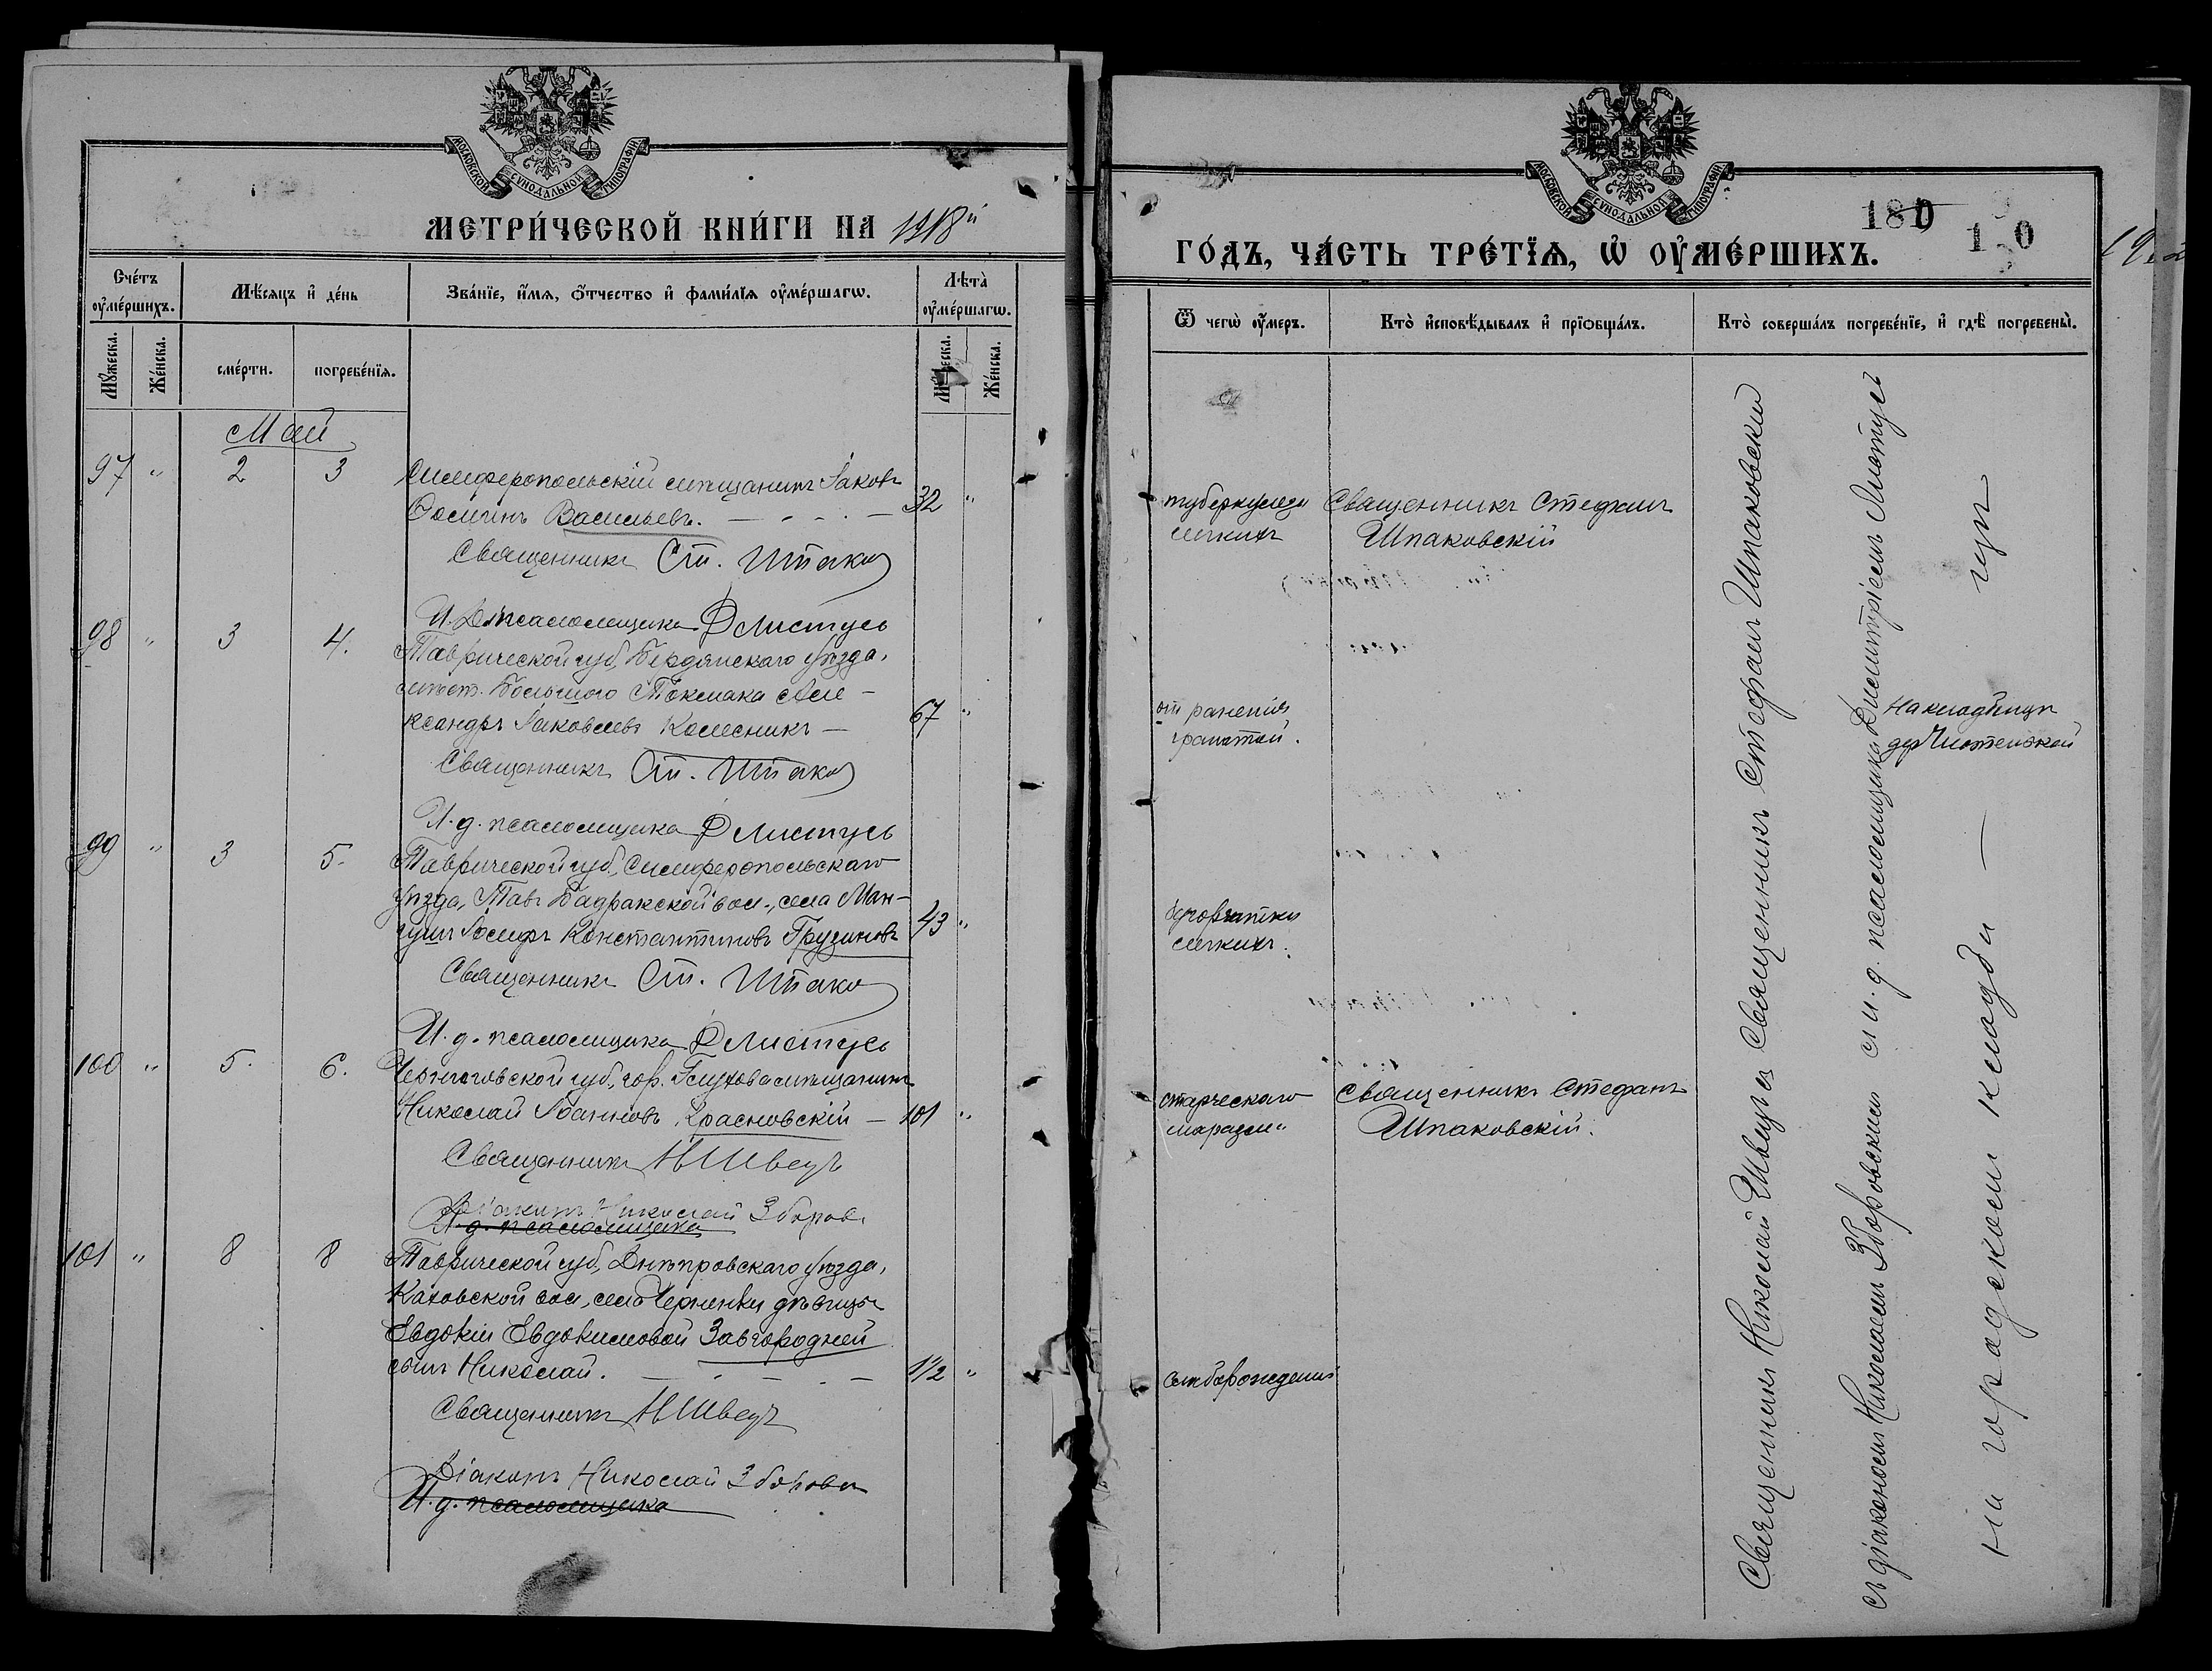 МОСКОВСКОЙ СѴНОДАЛЬНОЙ ТИПОГРАФІИ
МЕТРИ́ЧЕСКОЙ КНИ́ГИ НА 1918й
Сче́тъ ᲂу҆ме́ршихъ.
Мѣ́сяцъ и҆ де́нь
Зва́нїе, и҆́мя, ѻ҆́тчество и҆ фами́лїя ᲂу҆ме́ршагѡ.
Лѣ́та ᲂу҆ме́ршагѡ.
Мꙋ́жеска.
Же́нска.
сме́рти.
погребе́нїя.
Мꙋ́жеска.
Же́нска.
Май
97 " 2 3 Симферопольскій мѣщанинъ Іаковъ
Ѳоминъ Васильевъ. — 32 "
Священникъ Ст. Шпако
И. д. псаломщика Д Листусъ
98 " 3 4. Таврической губ, Бердянскаго уѣзда,
мѣст. Большого Токмака Але-
ксандръ Іаковлевъ Колесникъ — 67 "
Священникъ Ст. Шпако
И. д. псаломщика Д Листусъ
99 " 3 5. Таврической губ, Симферопольскаго
уѣзда, Тавъ Бадракской вол., села Ман-
гушъ Іосифъ Константиновъ Грузиновъ 43 "
Священникъ Ст. Шпако
И. д. псаломщика Д Листусъ
100 " 5. 6. Черниговской губ, гор. Глухова мѣщанинъ
Николай Іоанновъ Красновскій — 101 "
Священникъ Н Швецъ
Діаконъ Николай Зборов.
И. д. псаломщика
101 " 8 8 Таврической губ, Днѣпровскаго уѣзда,
Каховской вол, села Черненьки дѣвицы
Евдокіи Евдокимовой Завгородней
сынъ Николай. — 1/2 "
Священникъ Н Швецъ
Діаконъ Николай Зборовс
И. д. псаломщика
МОСКОВСКОЙ СѴНОДАЛЬНОЙ ТИПОГРАФІИ
180
1 0
ГО́ДЪ, ЧА́СТЬ ТРЕ́ТЇѦ, Ѡ҆ ОУ҆МЕ́РШИХЪ.
Ѿ чегѡ̀ ᲂу҆́меръ.
Кто̀ и҆сповѣ́дывалъ и҆ прїѻбща́лъ.
Кто̀ соверша́лъ погребе́нїе, и҆ гдѣ̀ погребены̀.
туберкулеза
легкихъ
Священникъ Стефанъ
Шпаковскій
от ранения
гранатой.
На кладбищѣ
дер Чистенькой
бугорчатки
легкихъ.
старческаго
маразма
Священникъ Стефанъ
Шпаковскій.
слаборожденія
Священникъ Николай Швецъ и Священникъ Стефанъ Шпаковскій
съ діакономъ Николаемъ Зборовскимъ и и. д. псаломщика Димитріемъ Листусъ
на городскомъ кладби — щѣ